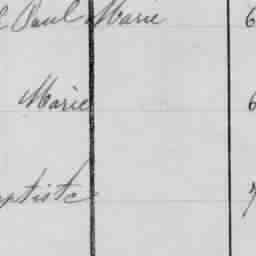 Paul Marie 6
Marie 6
ptiste 7